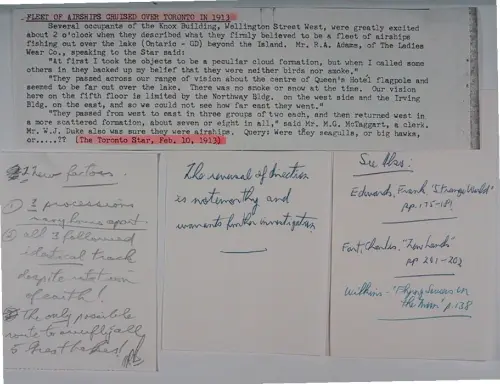 FLEET OF AIRSHIPS CRUISED OVER TORONTO IN 1913
Several occupants of the Knox Building, Wellington Street West, were greatly excited
about 2 o'clock when they described what they firmly believed to be a fleet of airships
fishing out over the lake (Ontario - GD) beyond the Island. Mr. R.A. Adams, of The Ladies
Wear Co., speaking to the Star said:
"At first I took the objects to be a peculiar cloud formation, but when I called some
others in they backed up my belief that they were neither birds nor smoke."
"They passed across our range of vision about the centre of Queen's Hotel flagpole and
seemed to be far out over the lake. There was no smoke or snow at the time. Our vision
here on the fifth floor is limited by the Northway Bldg. on the west side and the Irving
Bldg. on the east, and so we could not see how far east they went."
"They passed from west to east in three groups of two each, and then returned west in
a more scattered formation, about seven or eight in all," said Mr. M.G. McTaggart, a clerk.
Mr. W.J. Duke also was sure they were airships. Query: Were they seagulls, or big hawks,
or.....?? (The Toronto Star, Feb. 10, 1913)
New factors.
① 3 processions
many hours apart.
② all 3 followed
identical track
despite rotation
of earth!
The only possible
route to
5
The reversal of direction
is noteworthy and
warrants further investigation
See Also:
Edwards, Frank, "Strange World"
pp.
Fort, Charles, "New Lands"
pp
Wilkins - "Flying Saucers on
the Moon" p. 138